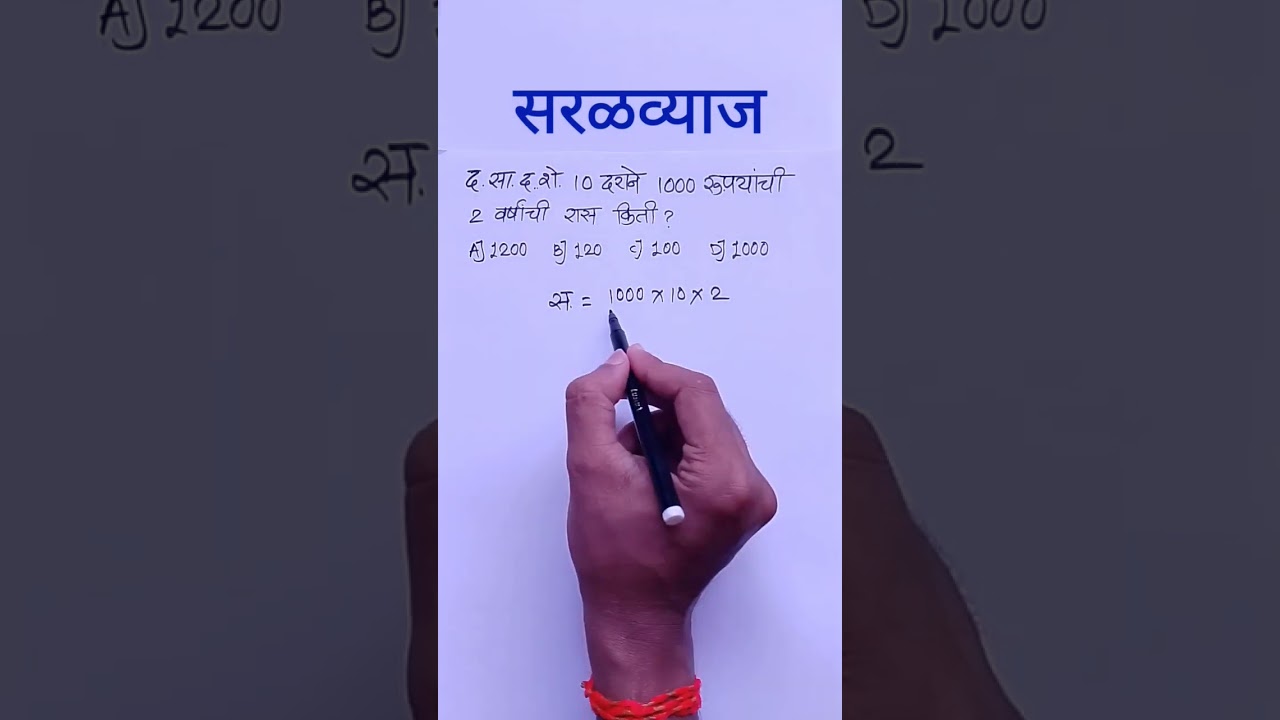 सरळव्याज
द.सा.द.शे. 10 दराने 1000 रुपयांची
2 वर्षांची रास किती?
A) 1200 B) 120 C) 100 D) 1000
स. = 1000 × 10 × 2